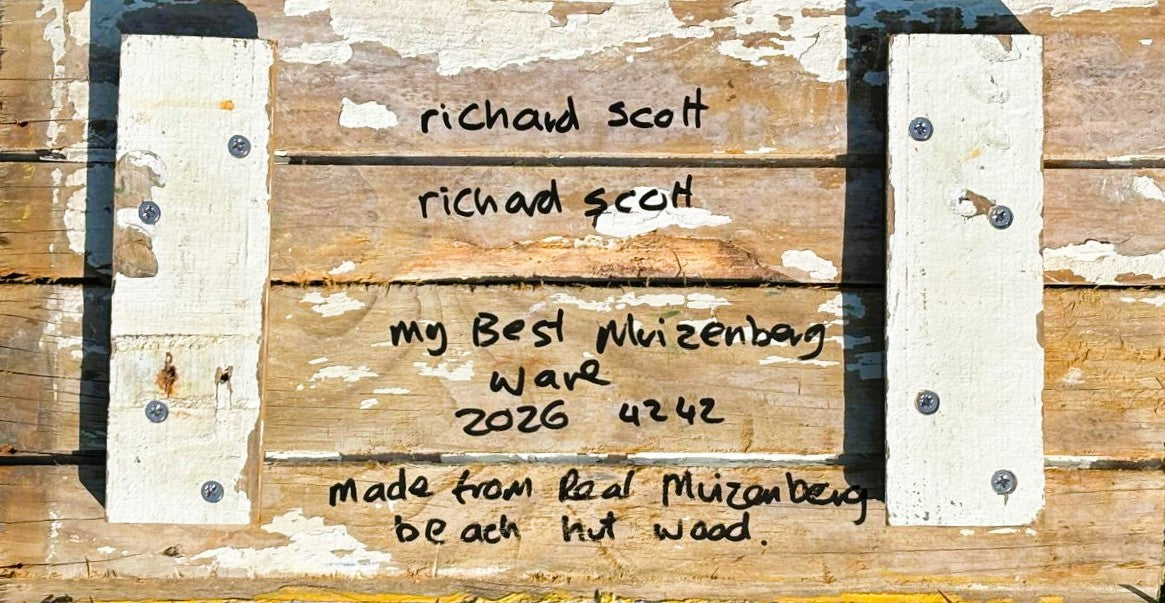 richard scott
richard scott
my Best Muizenberg
wave
2026 4242
made from Real Muizenberg
beach hut wood.